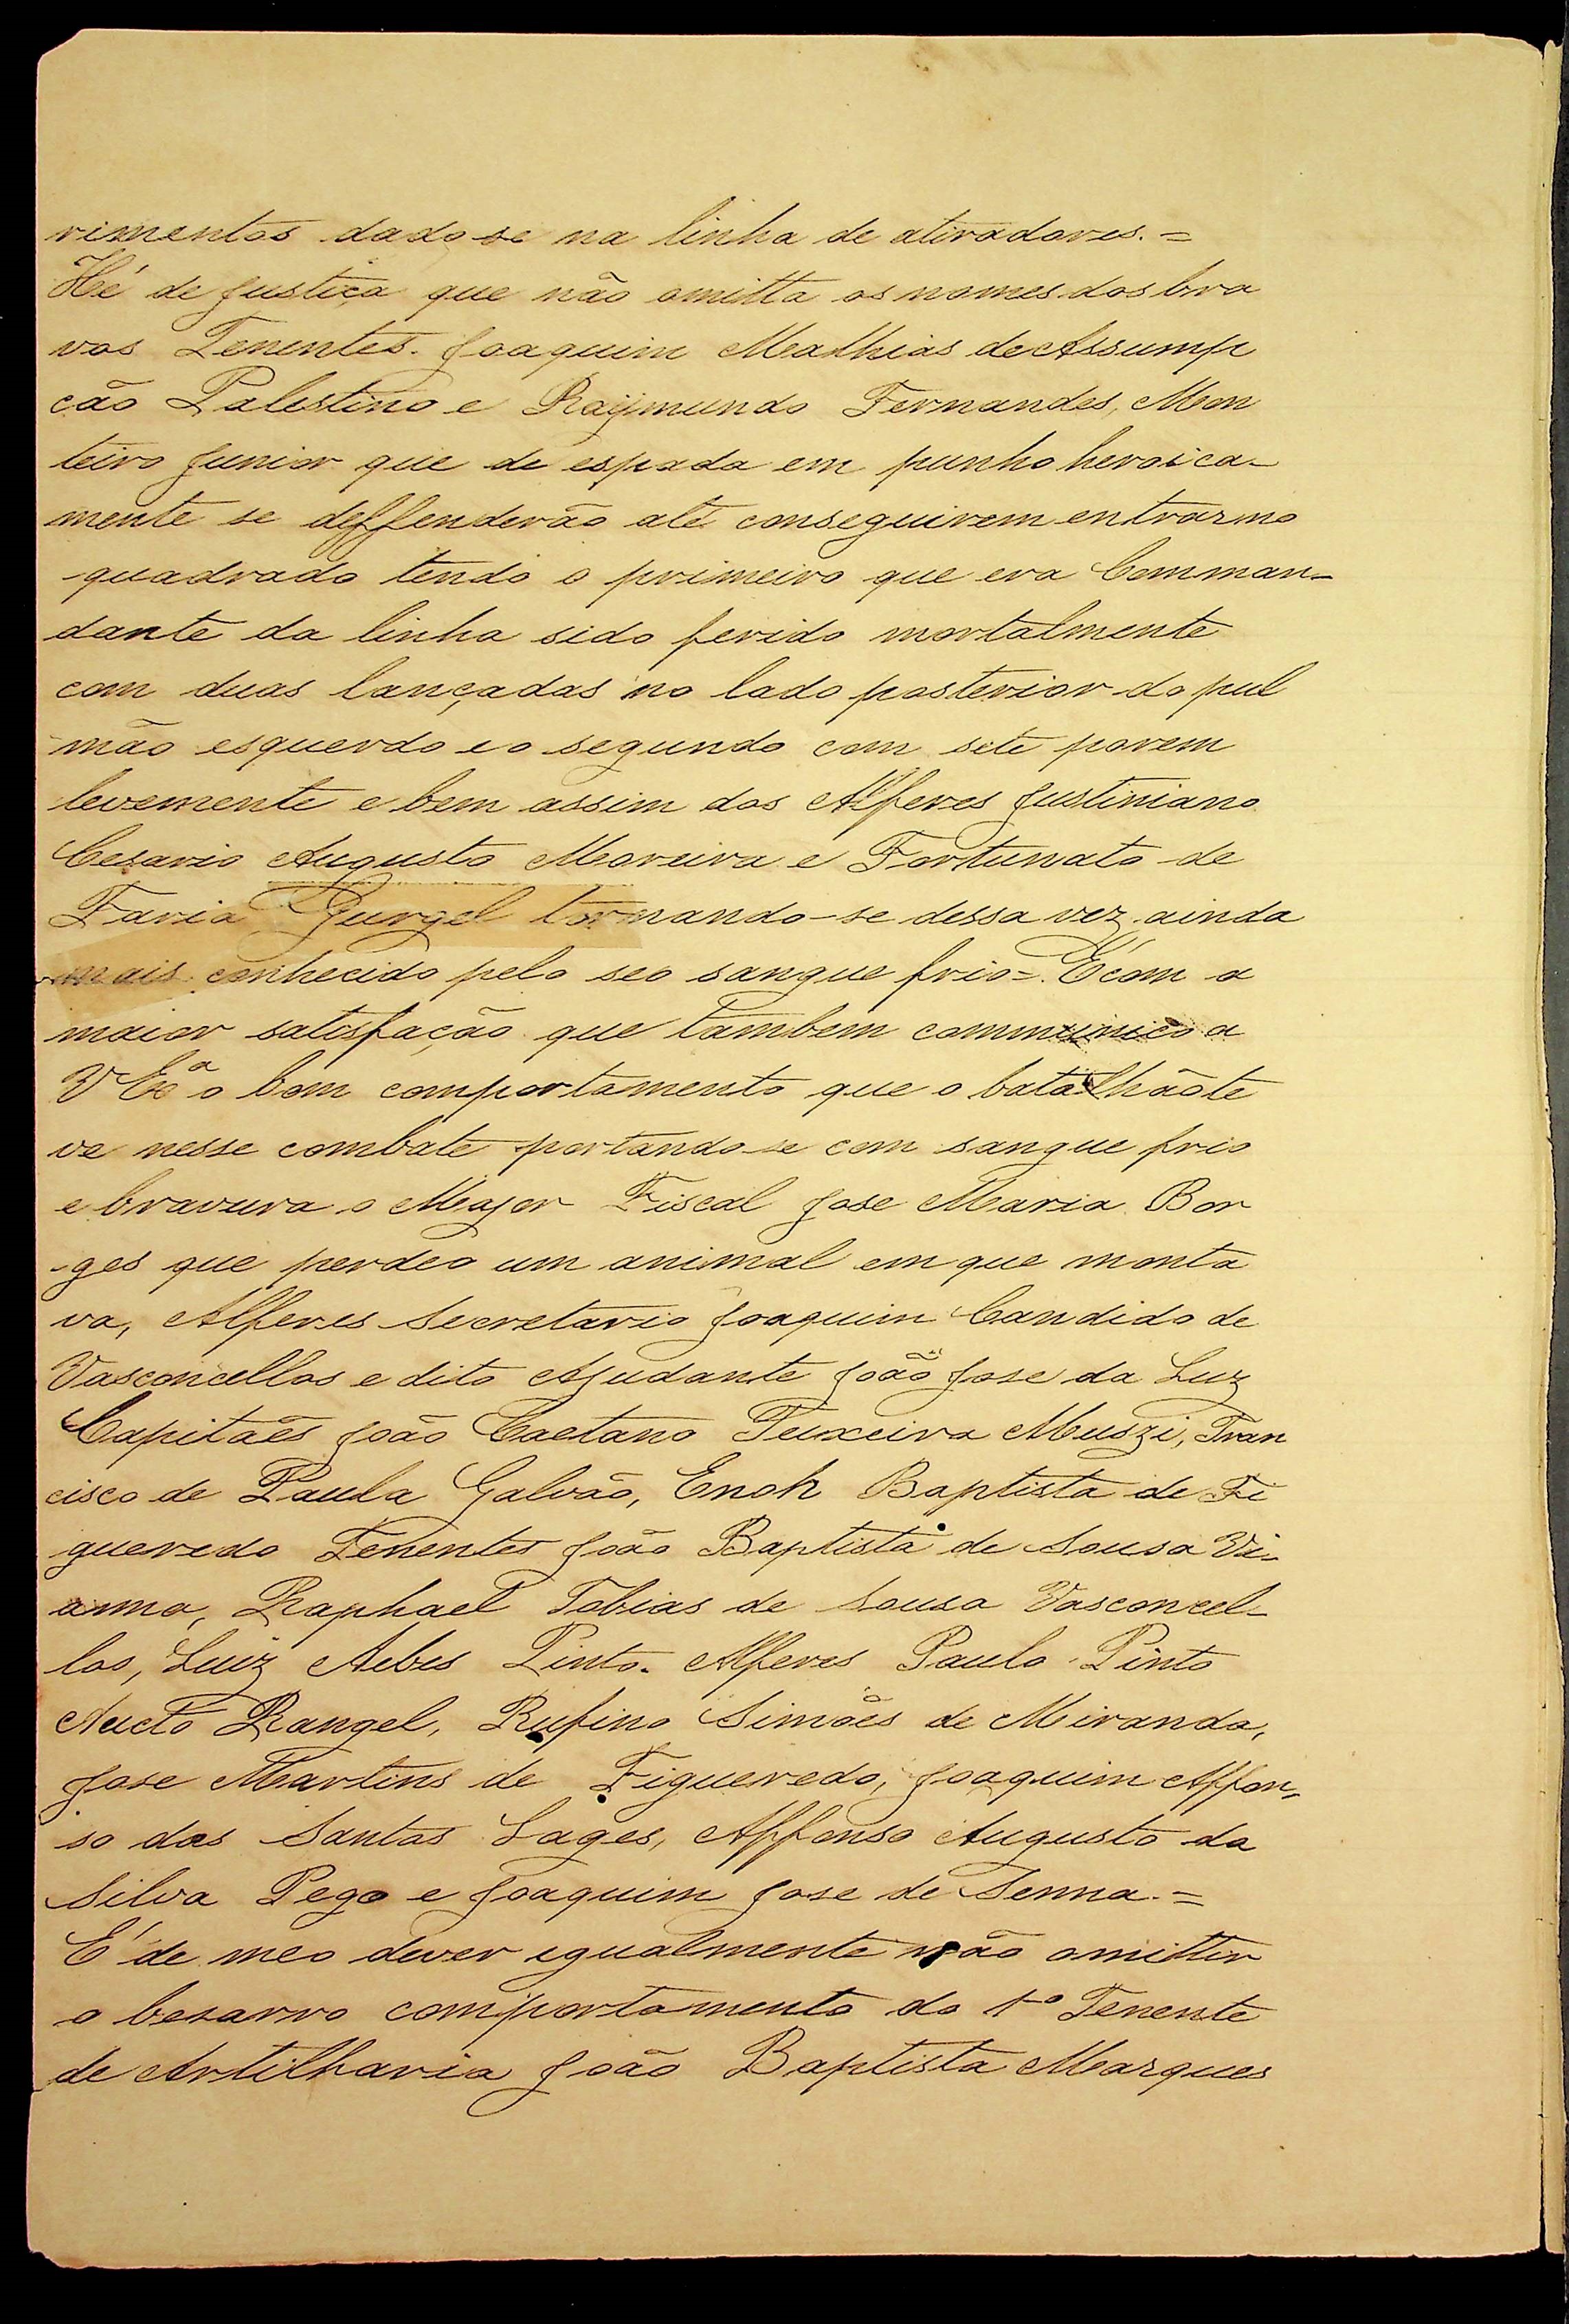 rimentos dado se na linha de atiradores. =
Hé de justiça que não omitta os nomes dos bra
vos Tenentes. Joaquim Mathias de Assump
cão Palestino e Raymundo Fernandes, Mon
teiro Junior que de espada em punho heroica-
mente se deffenderão até conseguirem entrar no
quadrado tendo o primeiro que era Comman-
dante da linha sido ferido mortalmente
com duas lançadas no lado posterior do pul
mão esquerdo e o segundo com sete porem
levemente e bem assim dos Alferes Justiniano
Cesario Augusto Moreira e Fortunato de
Faria Gurgel tornando-se dessa vez ainda
mais conhecido pelo seo sangue frio =. É com a
maior satisfação que tambem communico a
V Exª o bom comportamento que o batalhão te
ve nesse combate portando se com sangue frio
e bravura o Major Fiscal Jose Maria Bor
ges que perdeo um animal em que monta
va, Alferes Secretario Joaquim Candido de
Vasconcellos e dito Ajudante João Jose da Luz
Capitães João Caetano Teixeira Muszi, Fran
cisco de Paula Galvão, Enoh Baptista de Fi
gueredo Tenentes João Baptista de Sousa Vi-
anna, Raphael Tobias de Sousa Vasconcel-
los, Luiz Pinto. Alferes Paulo Pinto
Aucto Rangel, Rufino Simões de Miranda,
Jose Martins de Figueredo, Joaquim Affon-
so dos Santos Lages, Affonso Augusto da
Silva Pego e Joaquim Jose de Senna. =
É de meo dever egualmente não omittir
o besarro comportamento do 1º Tenente
de Artilharia João Baptista Marques